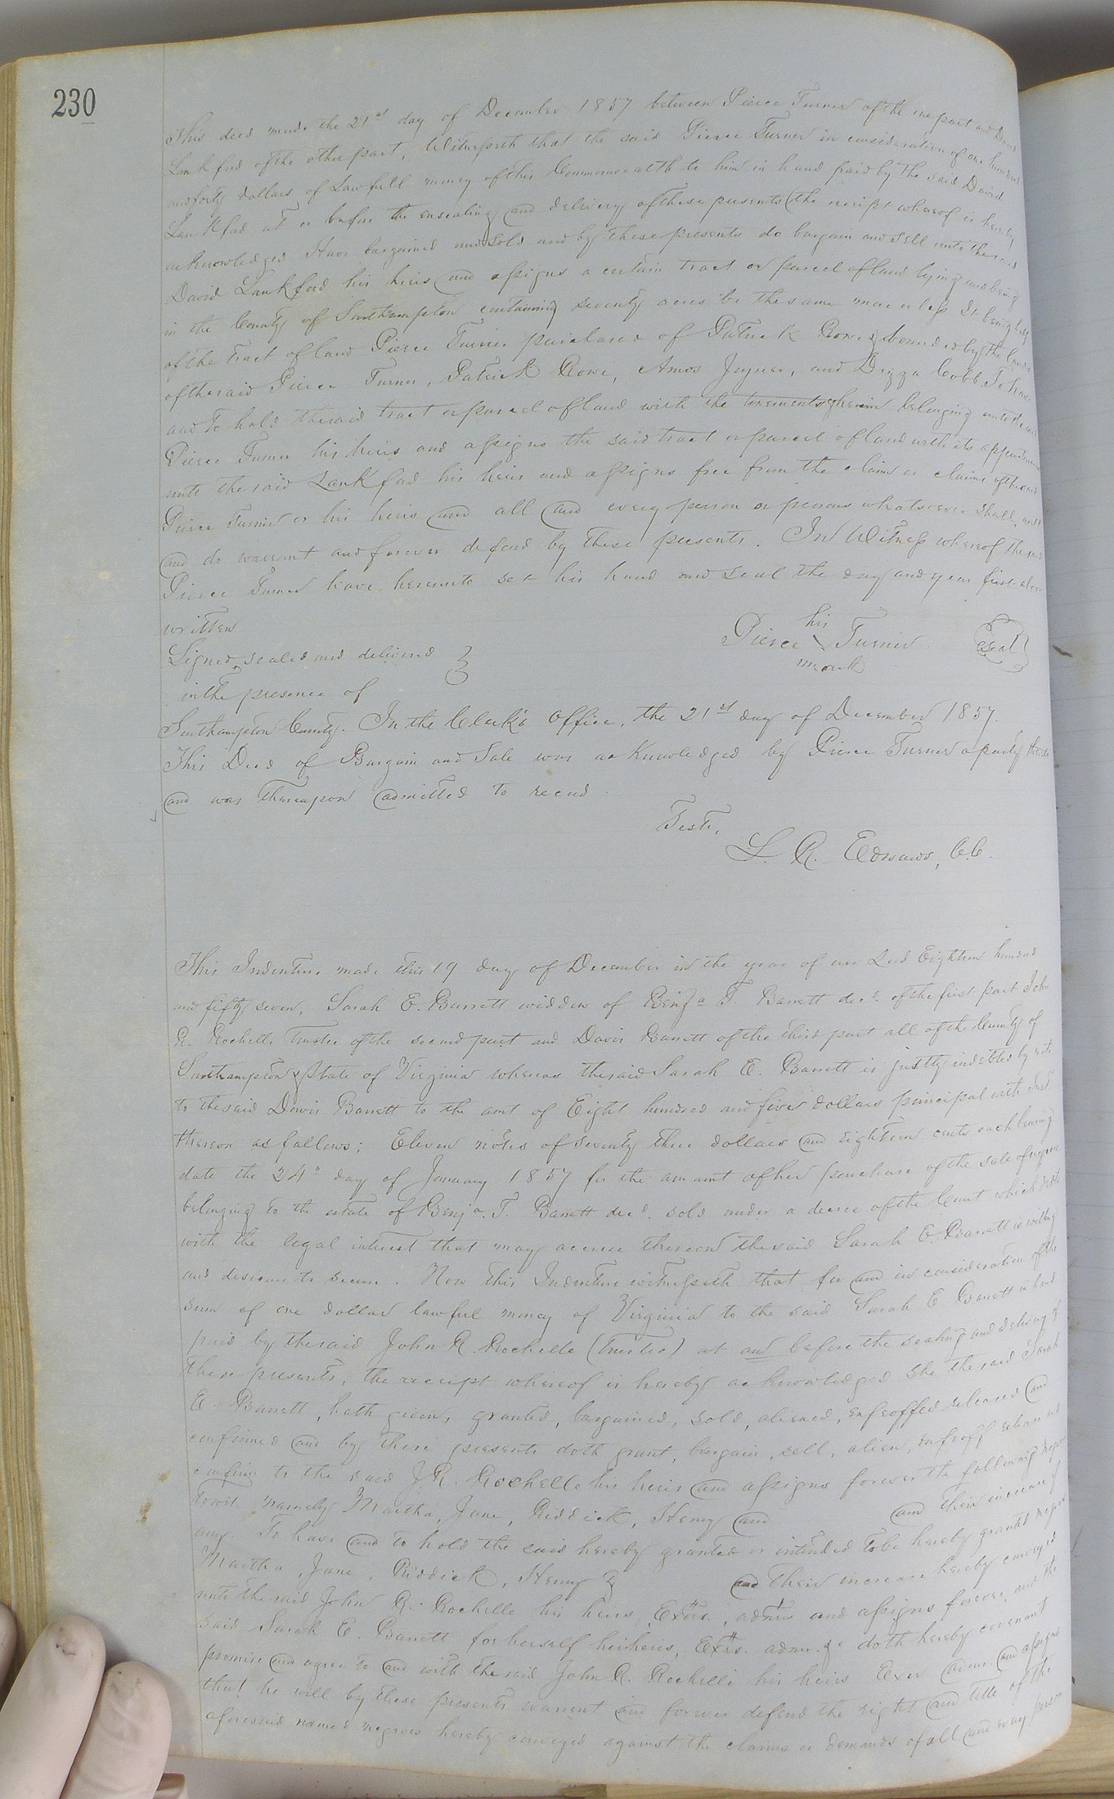 230
This deed made the 21st day of December 1857 between Pierce Turner of the one part and David
Lankford of the other part, Witnesseth that the said Pierce Turner in consideration of one hundred
and forty dollars of Lawfull money of this Commonwealth to him in hand paid by the said David
Lankford at or before the ensealing and delivery of these presents (the receipt whereof is hereby
acknowledged Have bargained and sold and by these presents do bargain and sell unto the said
David Lankford his heirs and assigns a certain tract or parcel of land lying and being
in the County of Southampton containing seventy acres be the same more or less It being
of the tract of land Pierce Turner purchased of Patrick Rowe & bounded by the lands
of the said Pierce Turner, Patrick Rowe, Amos Joyner, and Drizza Cobb. To have
and to hold the said tract or parcel of land with the tenements therein belonging unto the said
Pierce Turner his heirs and assigns the said tract or parcel of land with its appurtenances
unto the said Lankford his heirs and assigns free from the claim or claims of the said
Pierce Turner or his heirs and all and every person or persons whatsoever shall, will
and do warrant and forever defend by these presents. In Witness whereof the said
Pierce Turner have hereunto set his hand and seal the day and year first above
written
Pierce his Turner seal
mark
Signed sealed and delivered
in the presence of
Southampton County. In the Clerk's Office, the 21st day of December 1857.
This Deed of Bargain and Sale was acknowledged by Pierce Turner a party thereto
and was thereupon admitted to record.
Teste,
L. R. Edwards, C.C.
This Indenture made this 19 day of December in the year of our Lord Eighteen hundred
and fifty seven, Sarah E. Barrett widdow of Benja. T. Barrett decd. of the first part John
R. Rochelle Trustee of the second part and Davis Barrett of the third part all of the County of
Southampton & State of Virginia whereas the said Sarah E. Barrett is justly indebted by
to the said Davis Barrett to the amt of Eight hundred and five dollars principal with int
thereon as follows; Eleven notes of seventy three dollars and eighteen cents each bearing
date the 24th day of January 1857 for the amount of her purchase of the sale of negroes
belonging to the estate of Benja. T. Barrett decd. sold under a decree of the Court which debt
with the legal interest that may accrue thereon the said Sarah E Barrett is willing
and desirous to secure. Now this Indenture witnesseth that for and in consideration of the
sum of one dollar lawful money of Virginia to the said Sarah E Barrett in hand
paid by the said John R Rochelle (Trustee) at and before the sealing and delivery of
these presents, the receipt whereof is hereby acknowledged She the said Sarah
E Barrett, hath given, granted, bargained, sold, aliened, enfeoffed released and
confirmed and by these presents doth grant, bargain, sell, alien, enfeoff release and
confirm to the said J R. Rochelle his heirs and assigns forever the following negroes
towit, namely Martha, Jane, Riddick, Henry and and their increase if
any. To have and to hold the said hereby granted or intended to be hereby granted negroes
Martha, Jane, Riddick, Henry & and their increase hereby conveyed
unto the said John R. Rochelle his heirs, Extrs, admrs and assigns forever, and the
said Sarah E. Barrett for herself her heirs, Extrs. admr. &c doth hereby covenant
promise and agree to and with the said John R. Rochelle his heirs Exer admr. and assigns
that he will by these presents warrant and forever defend the right and title of the
aforesaid named negroes hereby conveyed against the claims or demands of all and every person